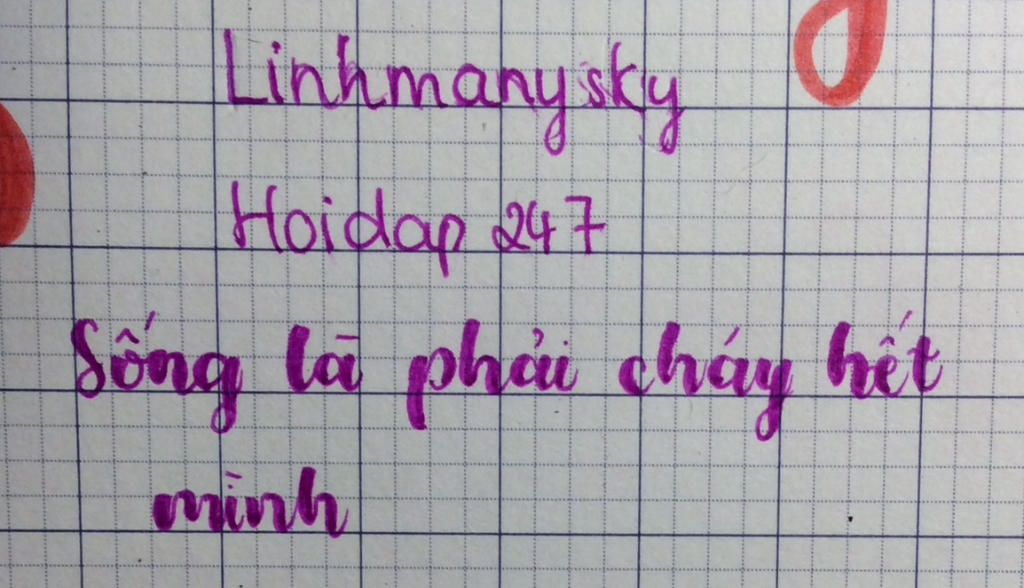 Linhmanysky
Hoidap 247
Sống là phải cháy hết
mình